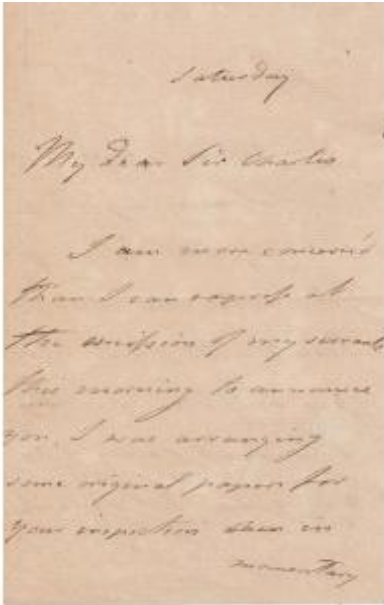 Saturday
My Dear Sir Charles
I am more concern'd
than I can express at
the omission of my servant
this morning to announce
you. I was arranging
some original papers for
your inspection when in
momentary